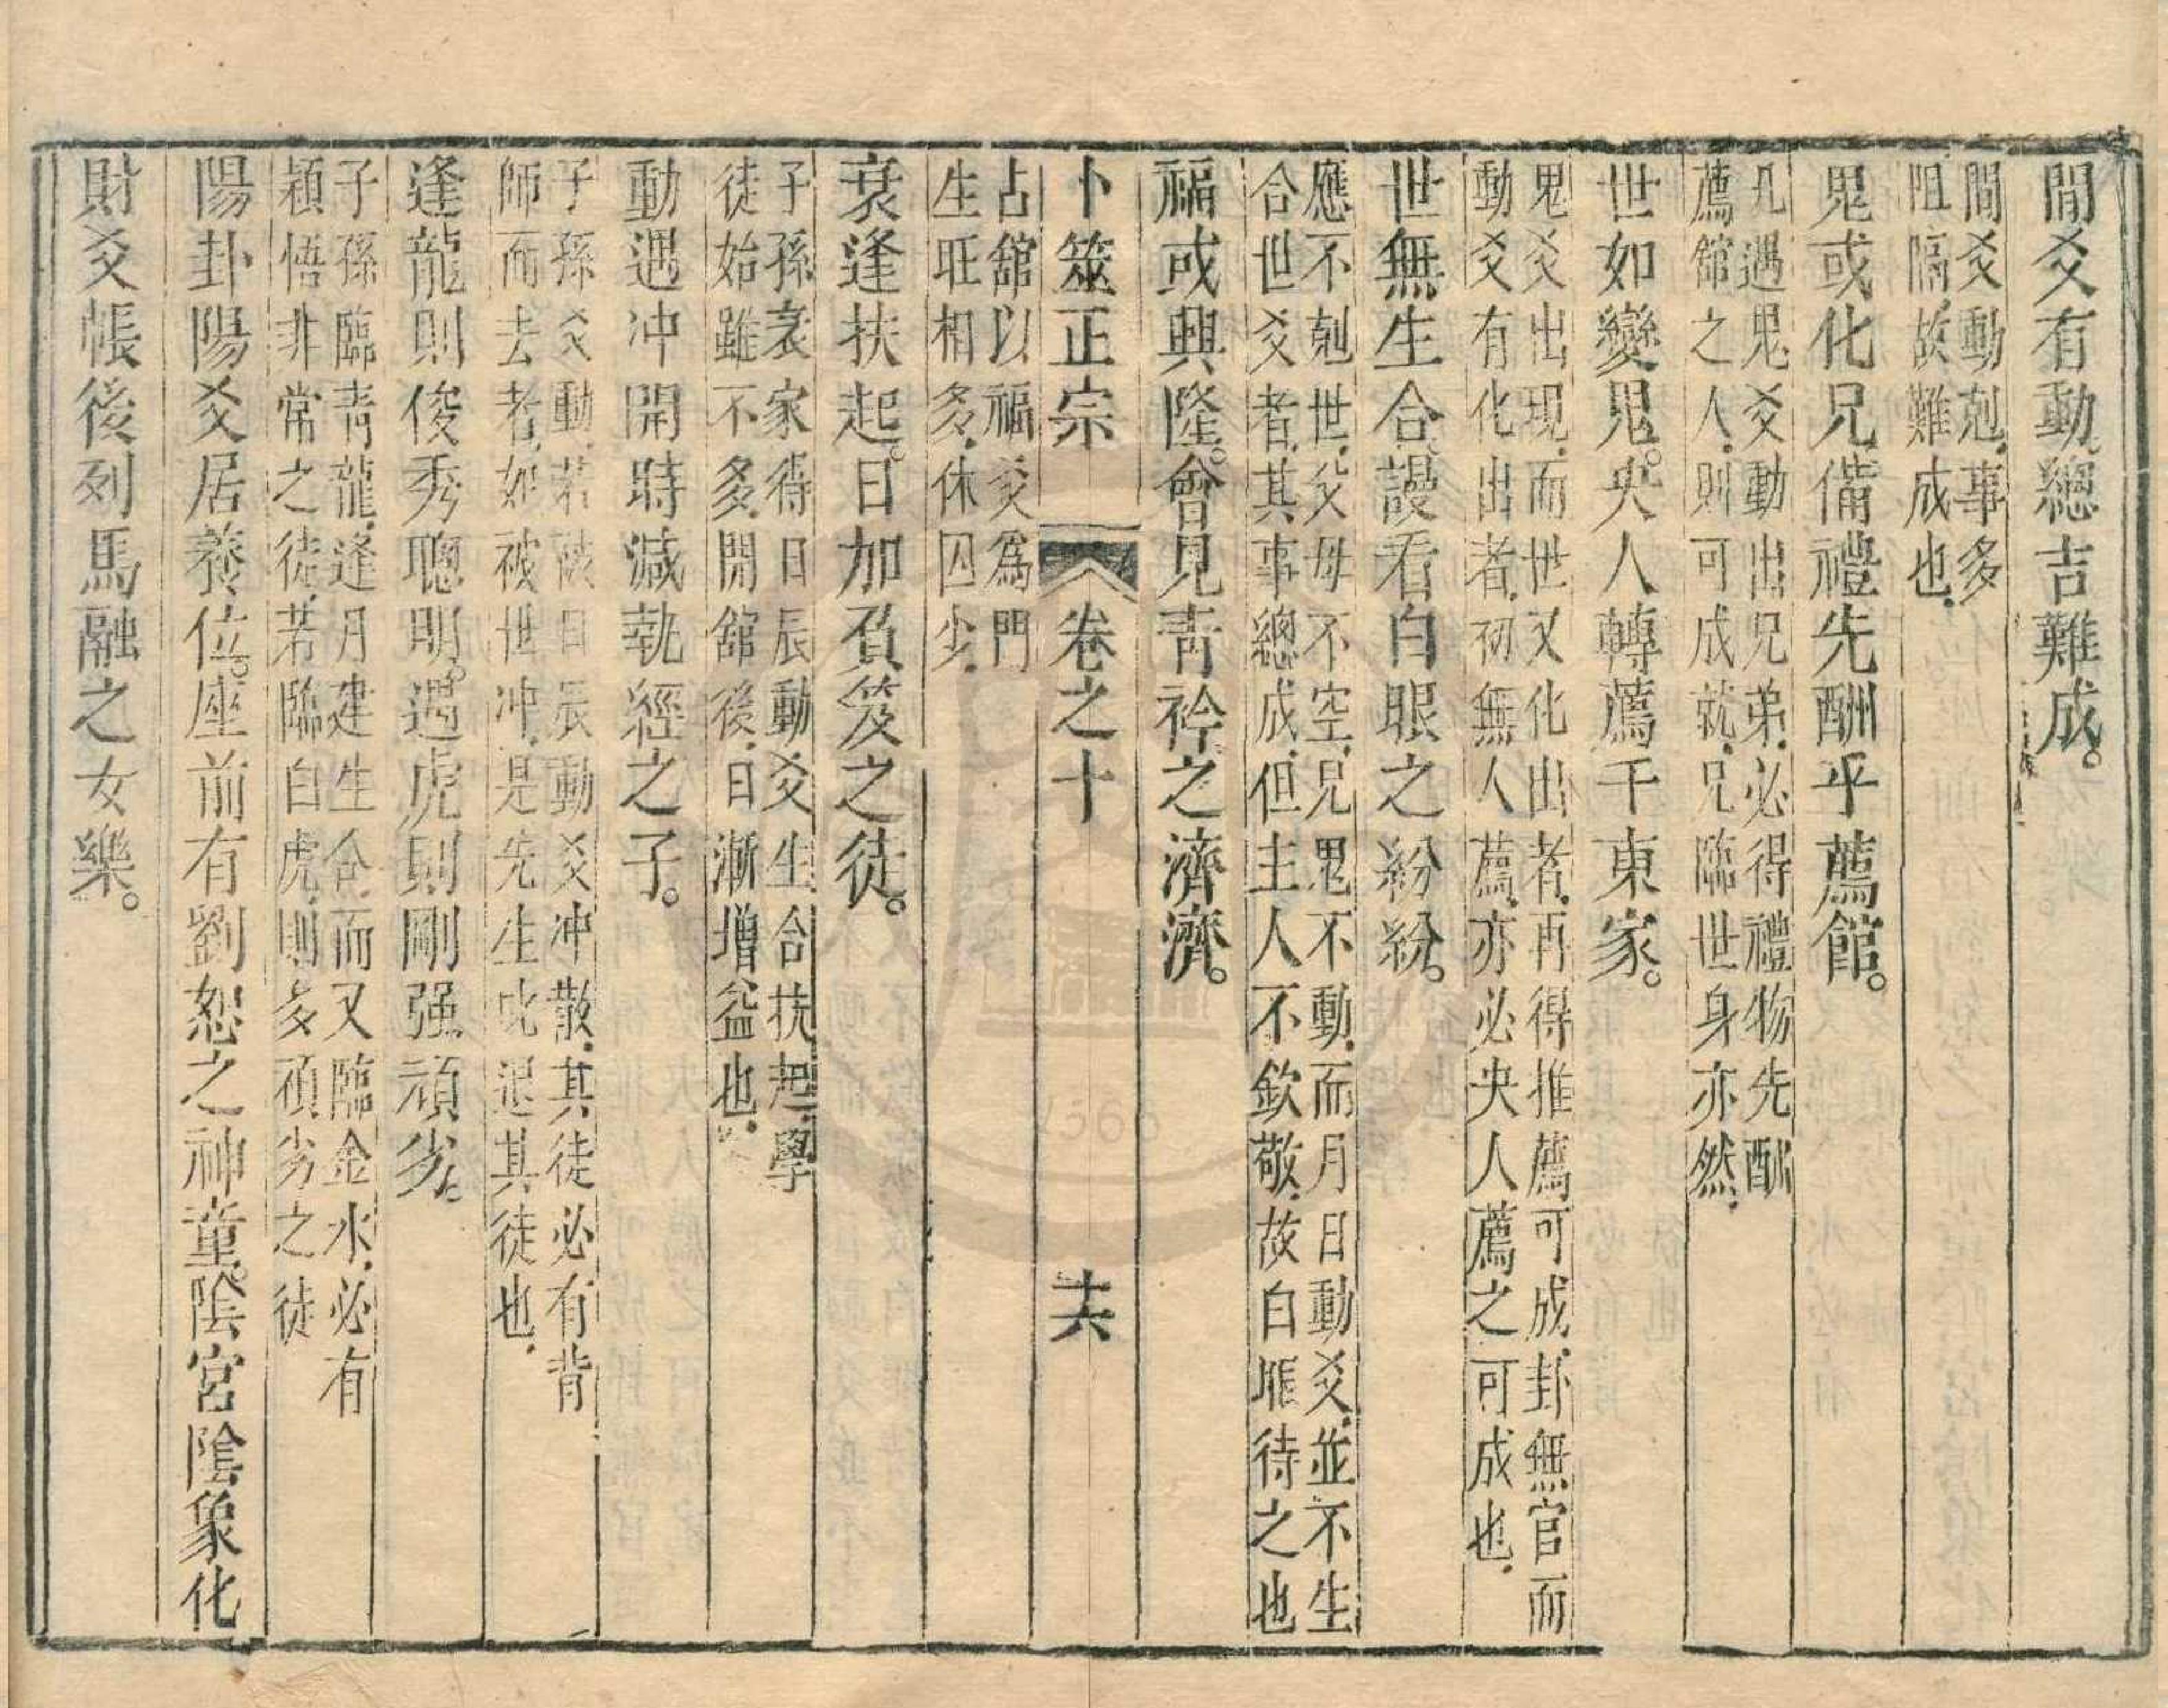 間爻有動總吉難成。
間爻動剋事多
阻隔故難成也
鬼或化兄備禮先酬乎薦館。
凡遇鬼爻動出兄弟必得禮物先酧
薦舘之人則可成就兄臨世身亦然
世如變鬼。央人轉薦于東家。
鬼爻出現而世又化出者再得推薦可成卦無官而
動爻有化出者初無人薦亦必央人薦之可成也
世無生合謾看白眼之紛紛。
應不剋世父母不空兄鬼不動而月日動爻並不生
合世爻者其事總成但主人不欽敬故白眼待之也
福或興隆。會見青衿之濟濟。
占舘以福爻爲門
生旺相多休囚少
卜筮正宗 卷之十 十六
衰逢扶起。日加負笈之徒。
子孫衰家得日辰動爻生合扶起學
徒始雖不多開舘後日漸增益也
動遇冲開時減執經之子。
子孫爻動若被日辰動爻冲散其徒必有背
師而去者如被世冲是先生叱退其徒也
逢龍則俊秀聰明。遇虎則剛强頑劣。
子孫臨青龍逢月建生合而又臨金水必有
穎悟非常之徒若臨白虎則多頑劣之徒
陽卦陽爻居養位。座前有劉恕之神童。陰宮陰象化
財爻帳後列馬融之女樂。